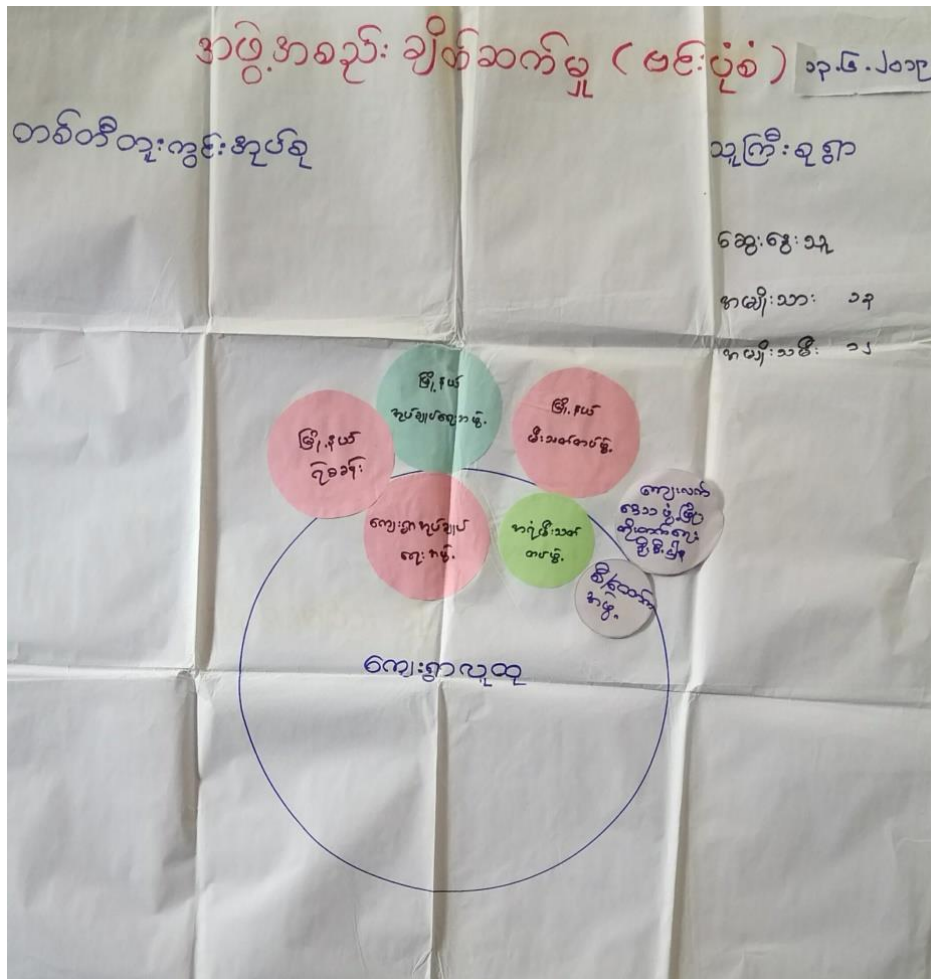 အဖွဲ့အစည်း ချိတ်ဆက်မှု ( ဗင်းပုံစံ ) ၁၃.၆.၂၀၁၉
တစ်တီတူးကွင်းအုပ်စု
သူကြီးစုရွာ
ဆွေးနွေးသူ
အမျိုးသား ၁၃
အမျိုးသမီး ၁၂
မြို့နယ်
အုပ်ချုပ်ရေးအဖွဲ့
မြို့နယ်
မီးသတ်တပ်ဖွဲ့
မြို့နယ်
ရဲစခန်း
ကျေးရွာအုပ်ချုပ်
ရေးအဖွဲ့
အရံမီးသတ်
တပ်ဖွဲ့
ကျေးလက်
ဒေသဖွံ့ဖြိုး
တိုးတက်ရေး
ဦးစီးဌာန
အဖွဲ့
ကျေးရွာလူထု